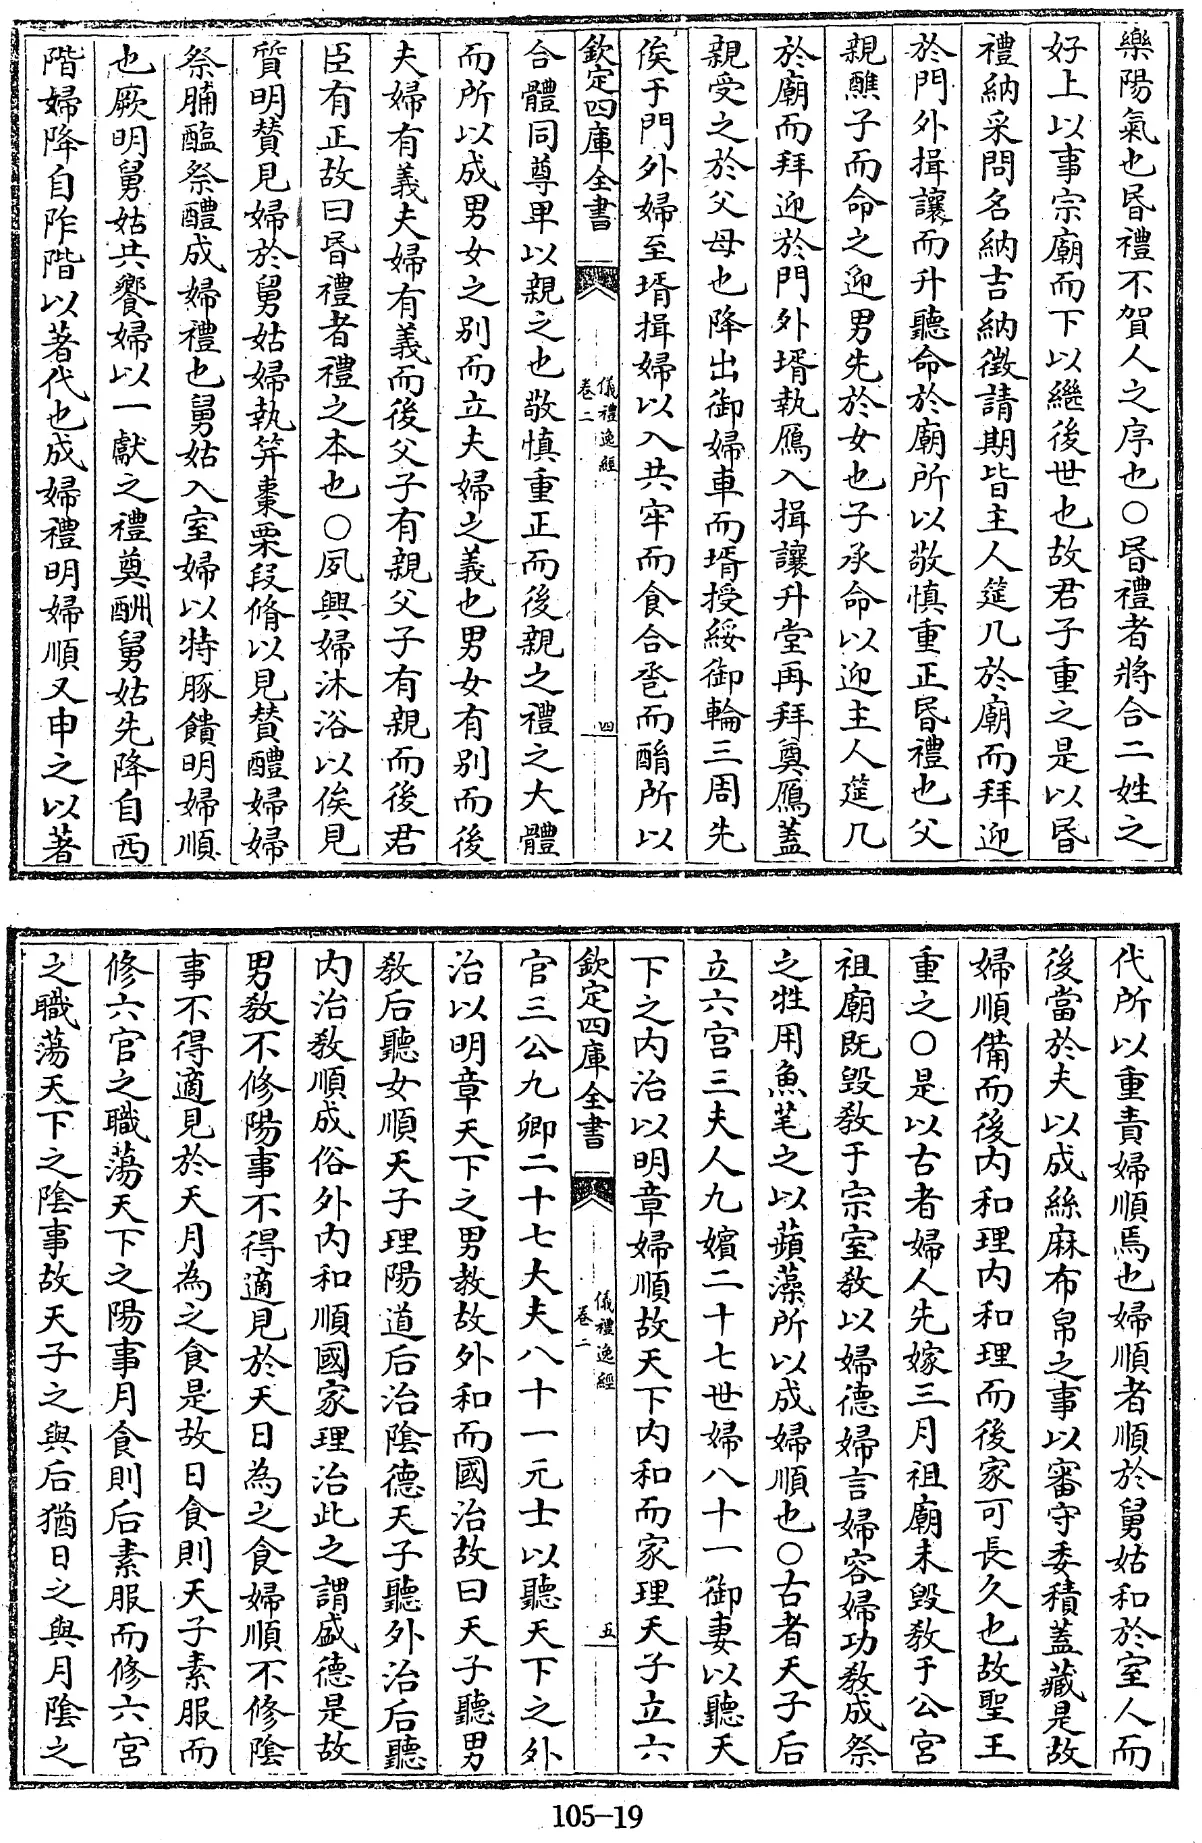 樂陽氣也昬禮不賀人之序也○昬禮者將合二姓之
好上以事宗廟而下以繼後世也故君子重之是以昬
禮納采問名納吉納徵請期皆主人筵几於廟而拜迎
於門外揖讓而升聽命於廟所以敬慎重正昬禮也父
親醮子而命之迎男先於女也子承命以迎主人筵几
於廟而拜迎於門外壻執鴈入揖讓升堂再拜奠鴈蓋
親受之於父母也降出御婦車而壻授綏御輪三周先
俟于門外婦至壻揖婦以入共牢而食合巹而酳所以
欽定四庫全書
儀禮逸經
卷二
四
合體同尊卑以親之也敬慎重正而後親之禮之大體
而所以成男女之别而立夫婦之義也男女有别而後
夫婦有義夫婦有義而後父子有親父子有親而後君
臣有正故曰昬禮者禮之本也○夙興婦沐浴以俟見
質明贊見婦於舅姑婦執笲棗栗段脩以見贊醴婦婦
祭脯醢祭醴成婦禮也舅姑入室婦以特豚饋明婦順
也厥明舅姑共饗婦以一獻之禮奠酬舅姑先降自西
階婦降自阼階以著代也成婦禮明婦順又申之以著
代所以重責婦順焉也婦順者順於舅姑和於室人而
後當於夫以成絲麻布帛之事以審守委積蓋藏是故
婦順備而後内和理内和理而後家可長久也故聖王
重之○是以古者婦人先嫁三月祖廟未毁教于公宫
祖廟既毁教于宗室教以婦德婦言婦容婦功教成祭
之牲用魚芼之以蘋藻所以成婦順也○古者天子后
立六宫三夫人九嬪二十七世婦八十一御妻以聽天
下之内治以明章婦順故天下内和而家理天子立六
欽定四庫全書
儀禮逸經
卷二
五
官三公九卿二十七大夫八十一元士以聽天下之外
治以明章天下之男教故外和而國治故曰天子聽男
教后聽女順天子理陽道后治陰德天子聽外治后聽
内治教順成俗外内和順國家理治此之謂盛德是故
男教不修陽事不得適見於天日為之食婦順不修陰
事不得適見於天月為之食是故日食則天子素服而
修六官之職蕩天下之陽事月食則后素服而修六宫
之職蕩天下之陰事故天子之與后猶日之與月陰之
105-19